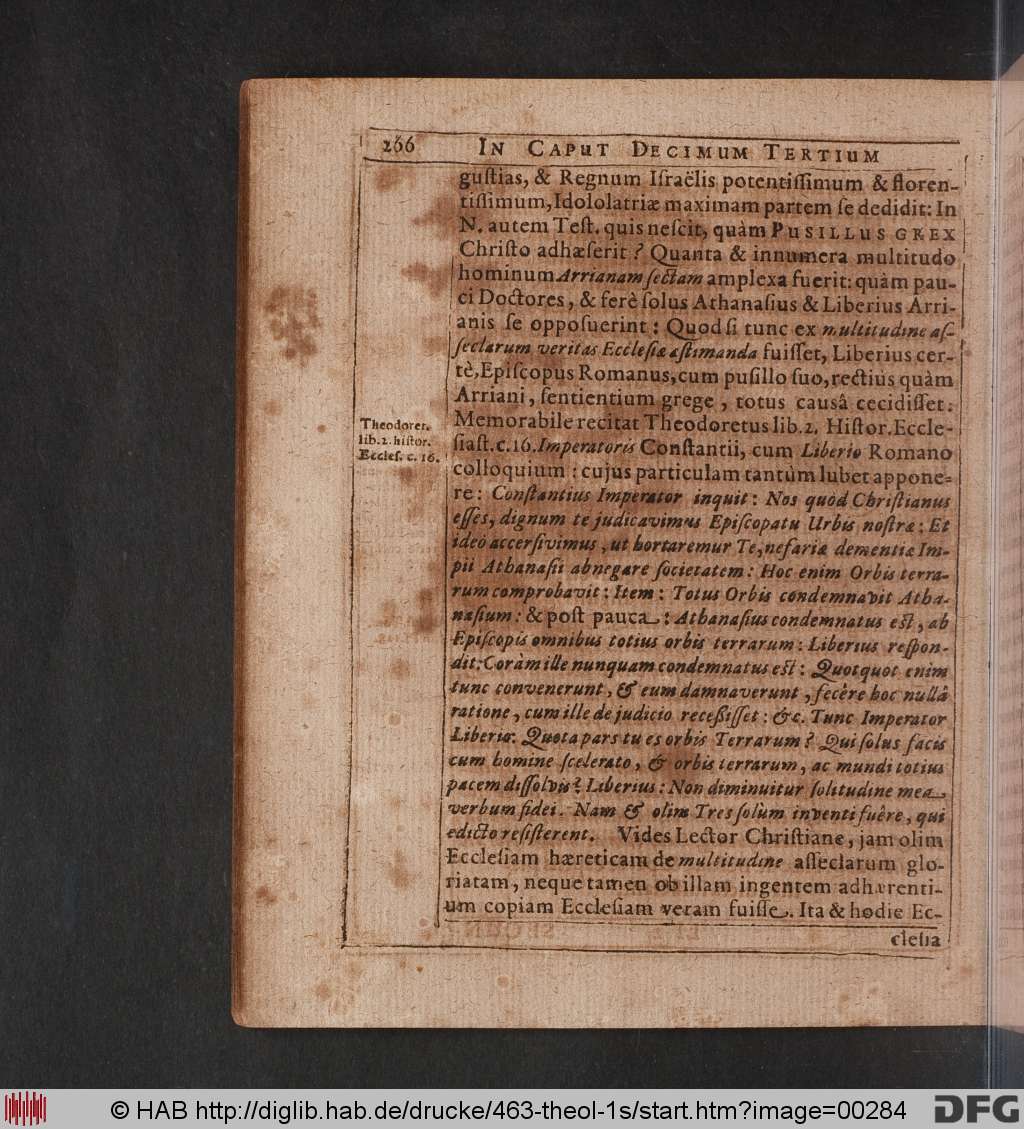 266 IN CAPUT DECIMUM TERTIUM
guſtias, & Regnum Iſraëlis potentiſſimum & floren-
tiſſimum, Idololatriæ maximam partem ſe dedidit: In
N. autem Teſt. quis neſcit, quàm PUSILLUS GREX
Chriſto adhæſerit? Quanta & innumera multitudo
hominum Arrianam ſectam amplexa fuerit: quàm pau-
ci Doctores, & ferè ſolus Athanaſius & Liberius Arri-
anis ſe oppoſuerint: Quod ſi tunc ex multitudine aſ-
ſeclarum veritas Eccleſiæ æſtimanda fuiſſet, Liberius cer-
tè, Epiſcopus Romanus, cum puſillo ſuo, rectius quàm
Arriani, ſentientium grege, totus causâ cecidiſſet.
Memorabile recitat Theodoretus lib. 2. Hiſtor. Eccle-
ſiaſt. c. 16. Imperatoris Conſtantii, cum Liberio Romano
colloquium: cujus particulam tantùm lubet appone-
re: Conſtantius Imperator inquit: Nos quòd Chriſtianus
eſſes, dignum te judicavimus Epiſcopatu Urbis noſtræ: Et
ideò accerſivimus, ut hortaremur Te, nefariæ dementiæ Im-
pii Athanaſii abnegare ſocietatem: Hoc enim Orbis terra-
rum comprobavit: Item: Totus Orbis condemnavit Atha-
naſium: & poſt pauca: Athanaſius condemnatus eſt, ab
Epiſcopis omnibus totius orbis terrarum: Liberius reſpon-
dit: Coràm ille nunquam condemnatus eſt: Quotquot enim
tunc convenerunt, & eum damnaverunt, fecêre hoc nullâ
ratione, cum ille de judicio receßiſſet: &c. Tunc Imperator
Liberio: Quota pars tu es orbis Terrarum? Qui ſolus facis
cum homine ſcelerato, & orbis terrarum, ac mundi totius
pacem diſſolvis? Liberius: Non diminuitur ſolitudine mea
verbum fidei. Nam & olim Tres ſolùm inventi fuêre, qui
edicto reſiſterent. Vides Lector Chriſtiane, jam olim
Eccleſiam hæreticam de multitudine aſſeclarum glo-
riatam, neque tamen ob illam ingentem adhærenti-
um copiam Eccleſiam veram fuiſſe. Ita & hodie Ec-
cleſia
Theodoret.
lib. 2. hiſtor.
Eccleſ. c. 16.
© HAB http://diglib.hab.de/drucke/463-theol-1s/start.htm?image=00284
DFG